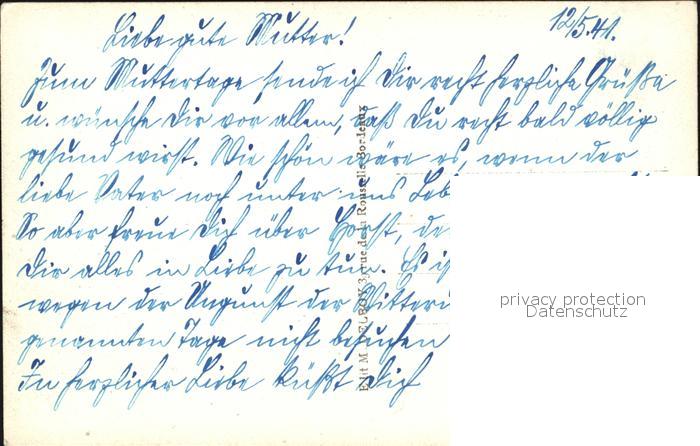 12/5.41.
Liebe gute Mutter!
Zum Muttertage sende ich Dir recht herzliche Grüße
u. wünsche Dir vor allem, daß Du recht bald völlig
gesund wirst. Wie schön wäre es, wenn der
liebe Vater noch unter uns
So aber freue Dich über Horst,
Dir alles in Liebe zu tun. Es
wegen der Ungunst der
genannten Tage nicht besuchen
In herzlicher Liebe küßt Dich
rue de la Rousselle Bordeaux
privacy protection
Datenschutz